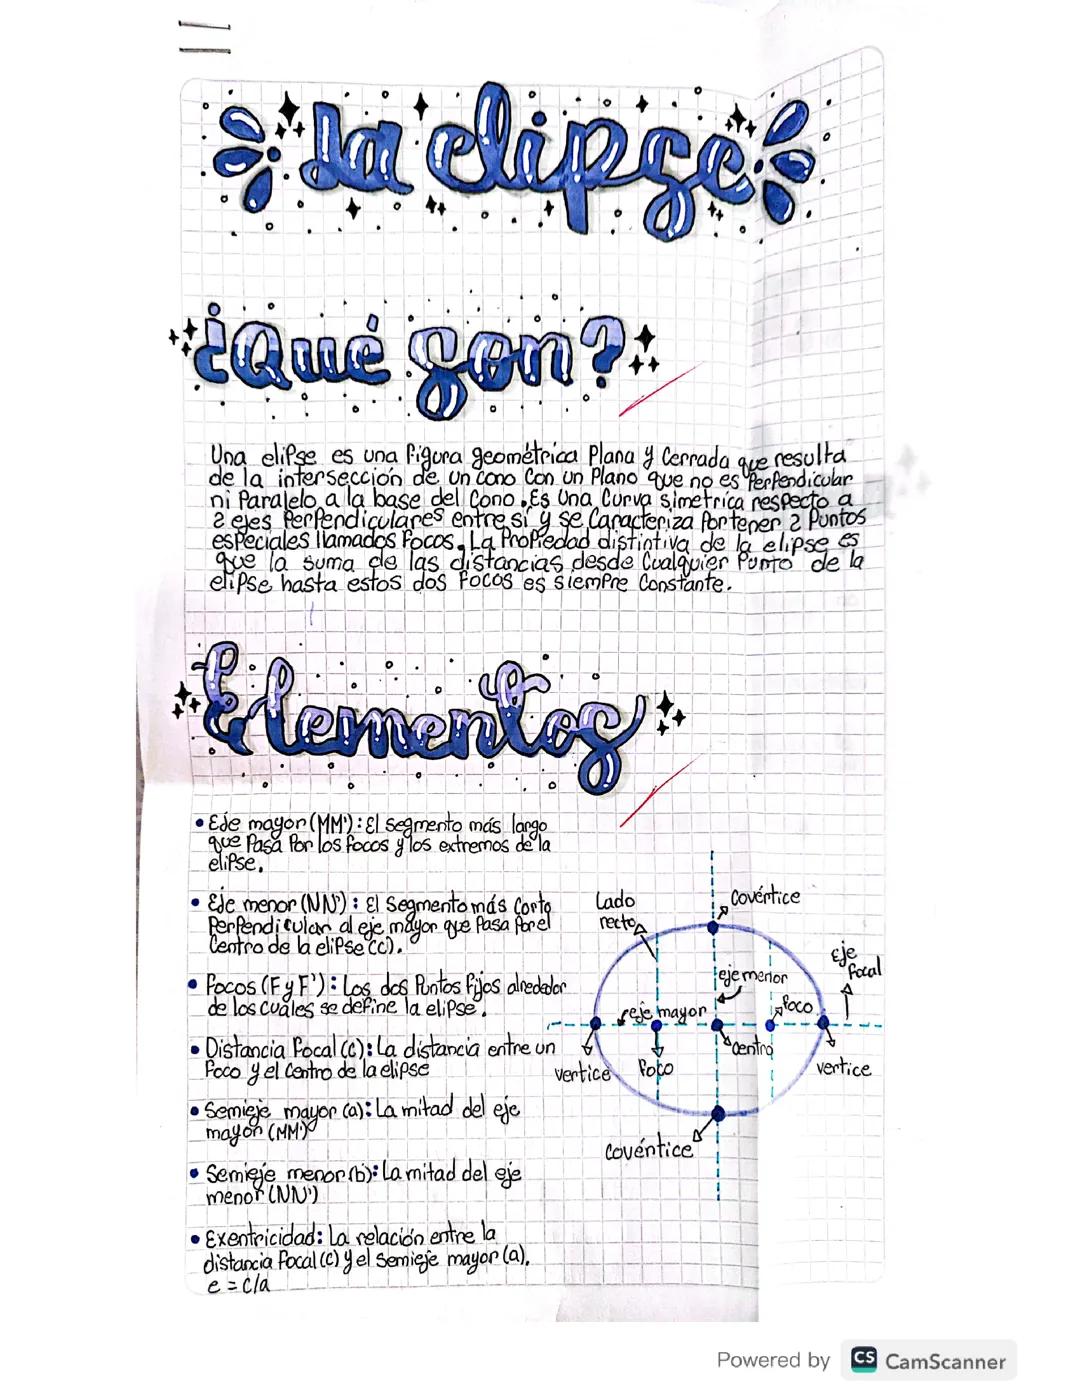 La elipse
¿Qué son?
Una elipse es una figura geométrica Plana y Cerrada que resulta
de la intersección de un cono Con un Plano que no es Perpendicular
ni Paralelo a la base del Cono. Es Una Curva simetrica respecto a
2 ejes Perpendiculares entre sí y se Caracteriza Por tener 2 Puntos
especiales llamados Focos. La Propiedad distintiva de la elipse es
que la suma de las distancias desde Cualquier Punto de la
elipse hasta estos dos Focos es siempre Constante.
Elementos
• Eje mayor (MM'): El segmento más largo
que Pasa Por los focos y los extremos de la
elipse.
• Eje menor (NN'): El Segmento más Corto
Perpendicular al eje mayor que Pasa Por el
Centro de la elipse (c).
• Focos (F y F'): Los dos Puntos fijos alrededor
de los cuales se define la elipse.
• Distancia Focal (C): La distancia entre un
Foco y el Centro de la elipse
• Semieje mayor (a): La mitad del eje
mayor (MM')
• Semieje menor (b): La mitad del eje
menor (NN')
• Exentricidad: La relación entre la
distancia Focal (C) y el Semieje mayor (a).
e = c/a
Lado
recto
Covértice
Eje
Focal
eje menor
eje mayor
Foco
Centro
vertice
Foco
vertice
Covéntice
Powered by CS CamScanner